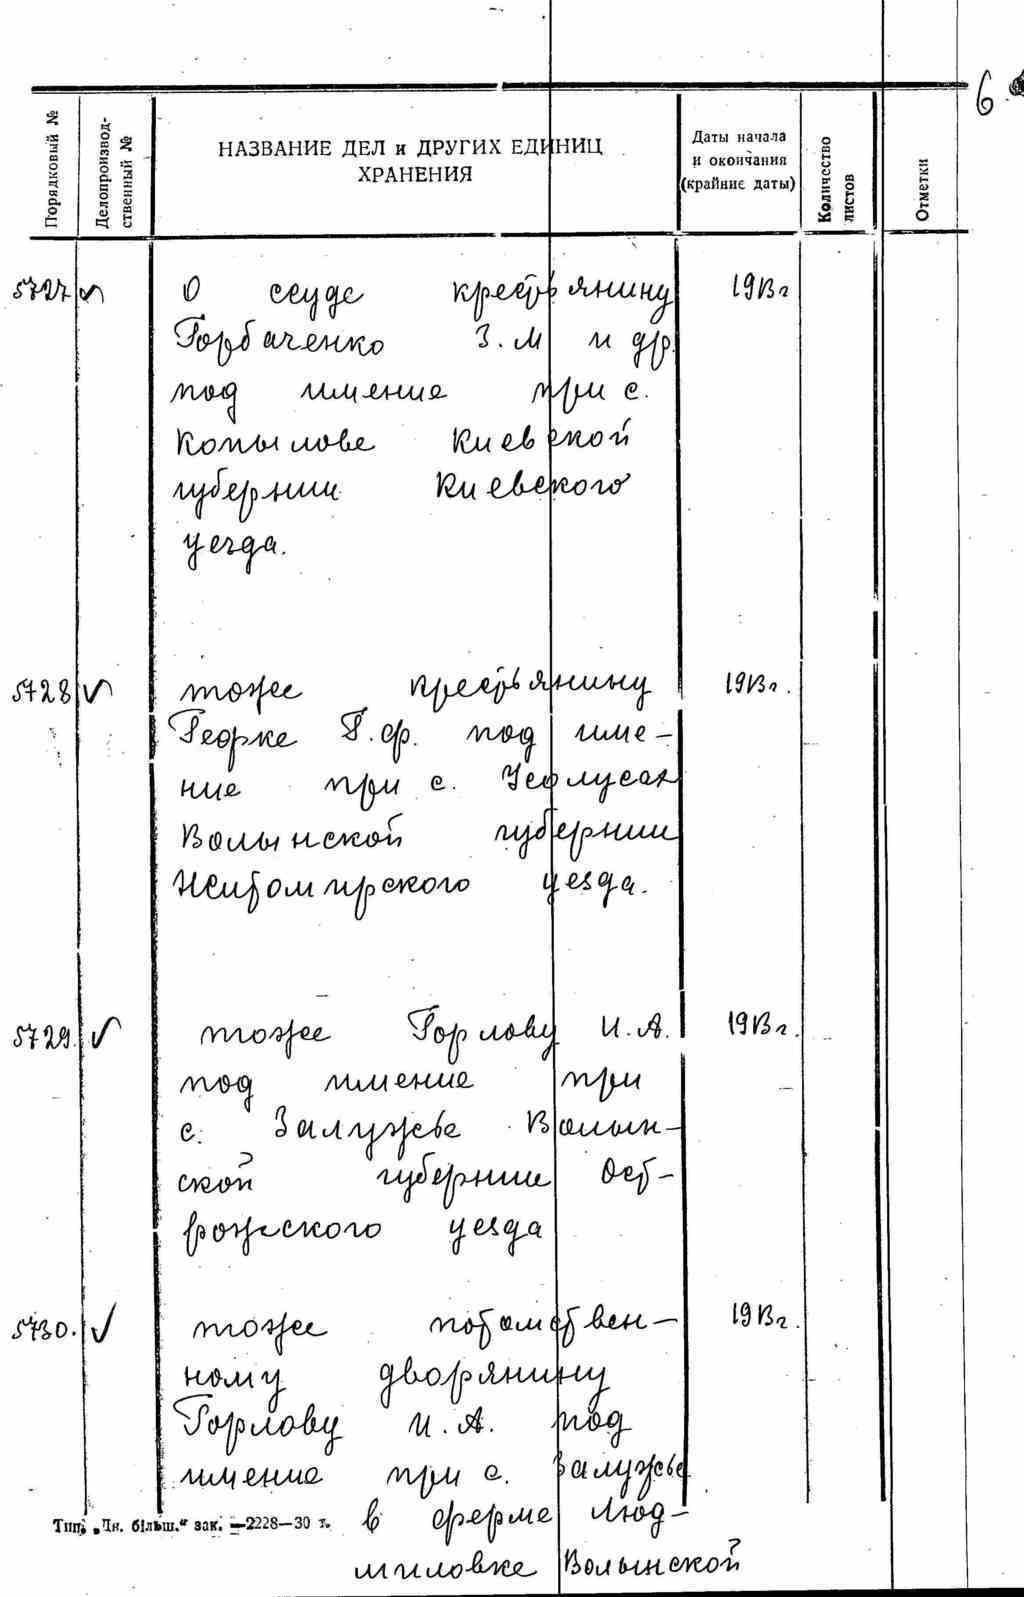 6
Порядковый №
Делопроизвод-
ственный №
НАЗВАНИЕ ДЕЛ и ДРУГИХ ЕДИНИЦ
ХРАНЕНИЯ
Даты начала
и окончания
(крайние даты)
Количество
листов
Отметки
5727 О ссуде крестьянину 1913 г
Горбаченко З.М и др.
под имение при с.
Копылове Киевской
губернии Киевского
уезда.
5728 тоже крестьянину 1913 г.
Г.Ф. под име-
ние при с.
Волынской губернии
Житомирского уезда.
5729. тоже Горлову И.А. 1913 г.
под имение при
с. Залужье Волын-
ской губернии Ост-
рожского уезда
5730. тоже потомствен- 1913 г.
ному дворянину
Горлову И.А. под
имение при с. Залужье
в ферме Люд-
миловке Волынской
Тип. „Ін. більш.“ зак. —2228—30 т.